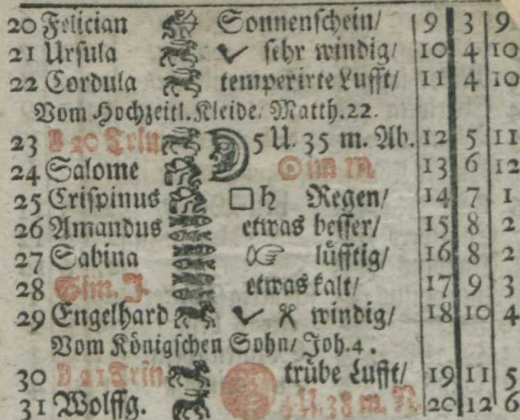 20 Felician Sonnenschein/ 9 3 9
21 Ursula sehr windig/ 10 4 10
22 Cordula temperirte Lufft/ 11 4 10
Vom Hochzeitl. Kleide. Matth. 22.
23 D 20 Trin. 5 U. 35 m. Ab. 12 5 11
24 Salome ☉ im ♏ 13 6 12
25 Crispinus □ ♄ Regen/ 14 7 1
26 Amandus etwas besser/ 15 8 2
27 Sabina lüfftig/ 16 8 2
28 Sim. J. etwas kalt/ 17 9 3
29 Engelhard windig/ 18 10 4
Vom Königschen Sohn/ Joh. 4.
30 D 21 Trin. trübe Lufft/ 19 11 5
31 Wolffg. U. 38 m. N. 20 12 6